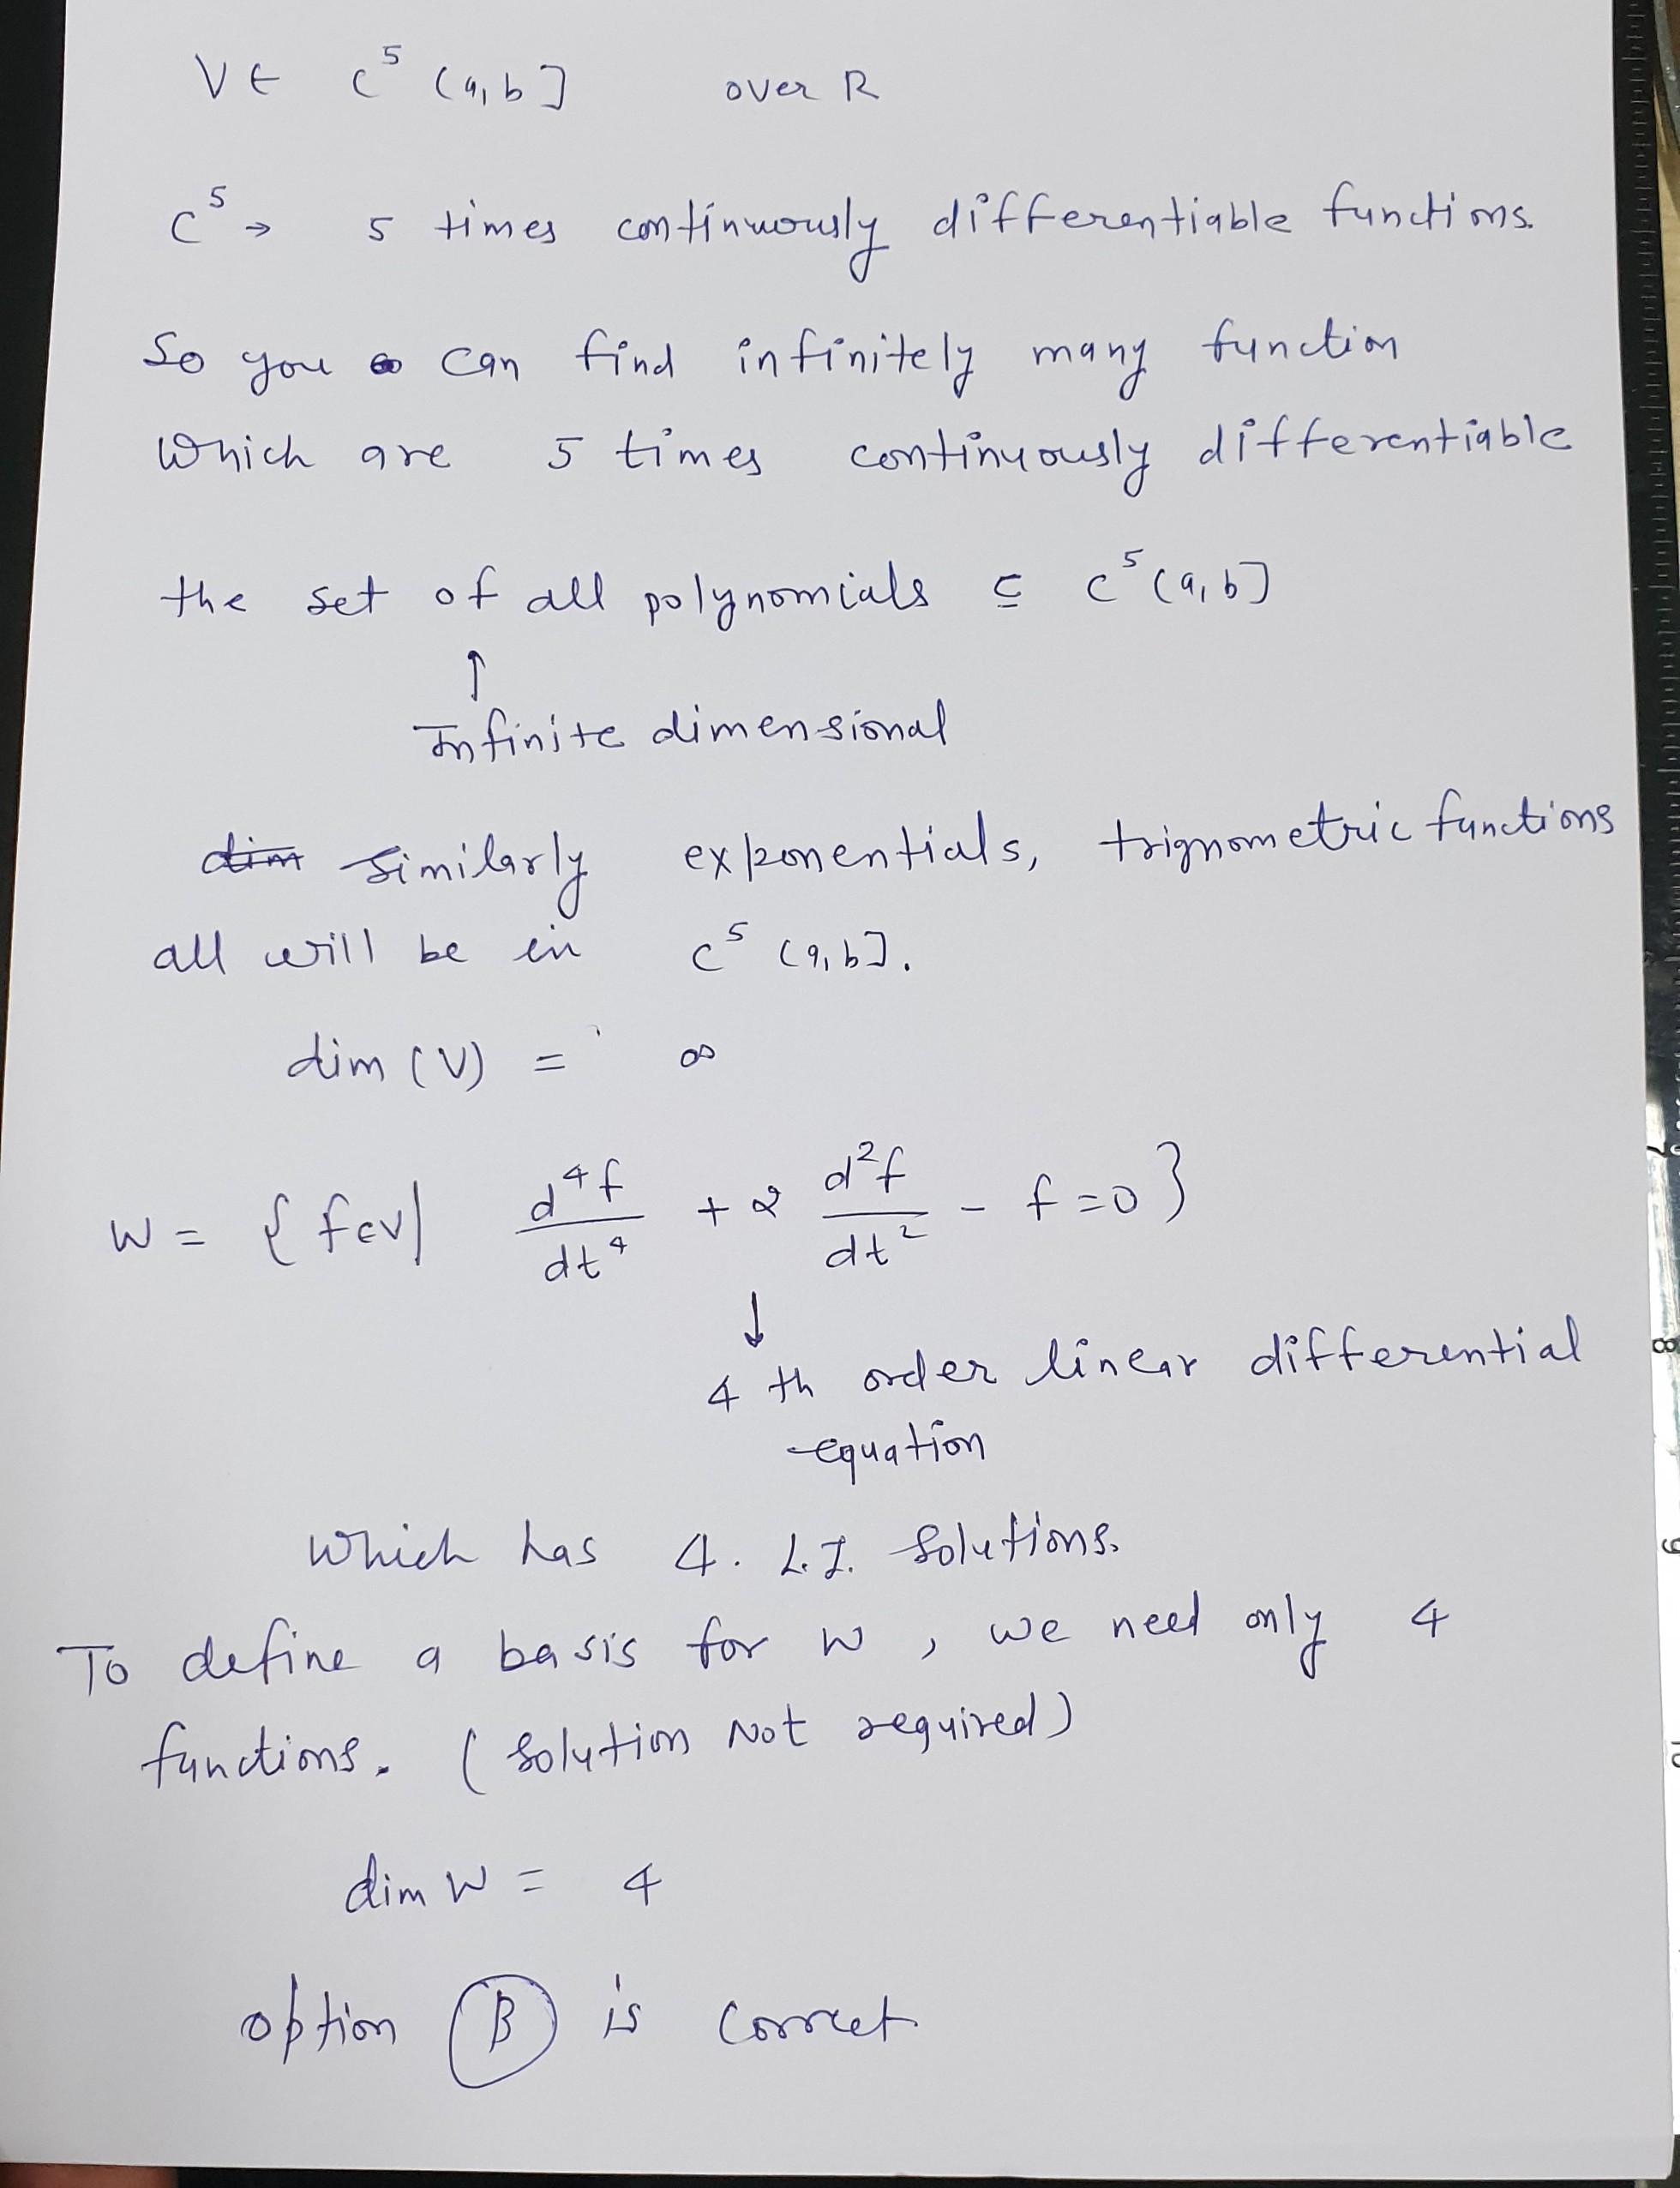 V ∈ C⁵ (a, b] over R
C⁵ → 5 times continuously differentiable functions.
So you can find infinitely many function
which are 5 times continuously differentiable
the set of all polynomials ⊆ C⁵ (a, b]
↑
Infinite dimensional
similarly exponentials, trignometric functions
all will be in C⁵ (a, b].
dim (V) = ∞
W = { f∈V | d⁴f/dt⁴ + 2 d²f/dt² - f = 0 }
↓
4 th order linear differential
equation
which has 4. L.I. solutions.
To define a basis for W, we need only 4
functions. ( solution Not required )
dim W = 4
option (B) is correct
7
8
9
10